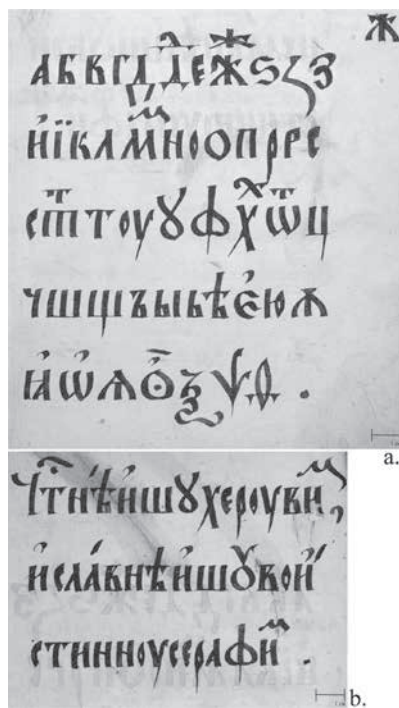 Ж
а б в г д д е ж ѕ ꙁ з
и ї к л м н о о п р р с
с т т оу ꙋ ф х ѿ ц
ч ш щ ъ ы ь ѣ є ю ѧ
ꙗ ѡ ѧ ѳ ѯ ѱ .
a.
Чⷭ҇тнѣ́ишꙋхероувиⷨ
и҆сла́внѣи҆шꙋвои́
стинноусерафиⷨ .
b.